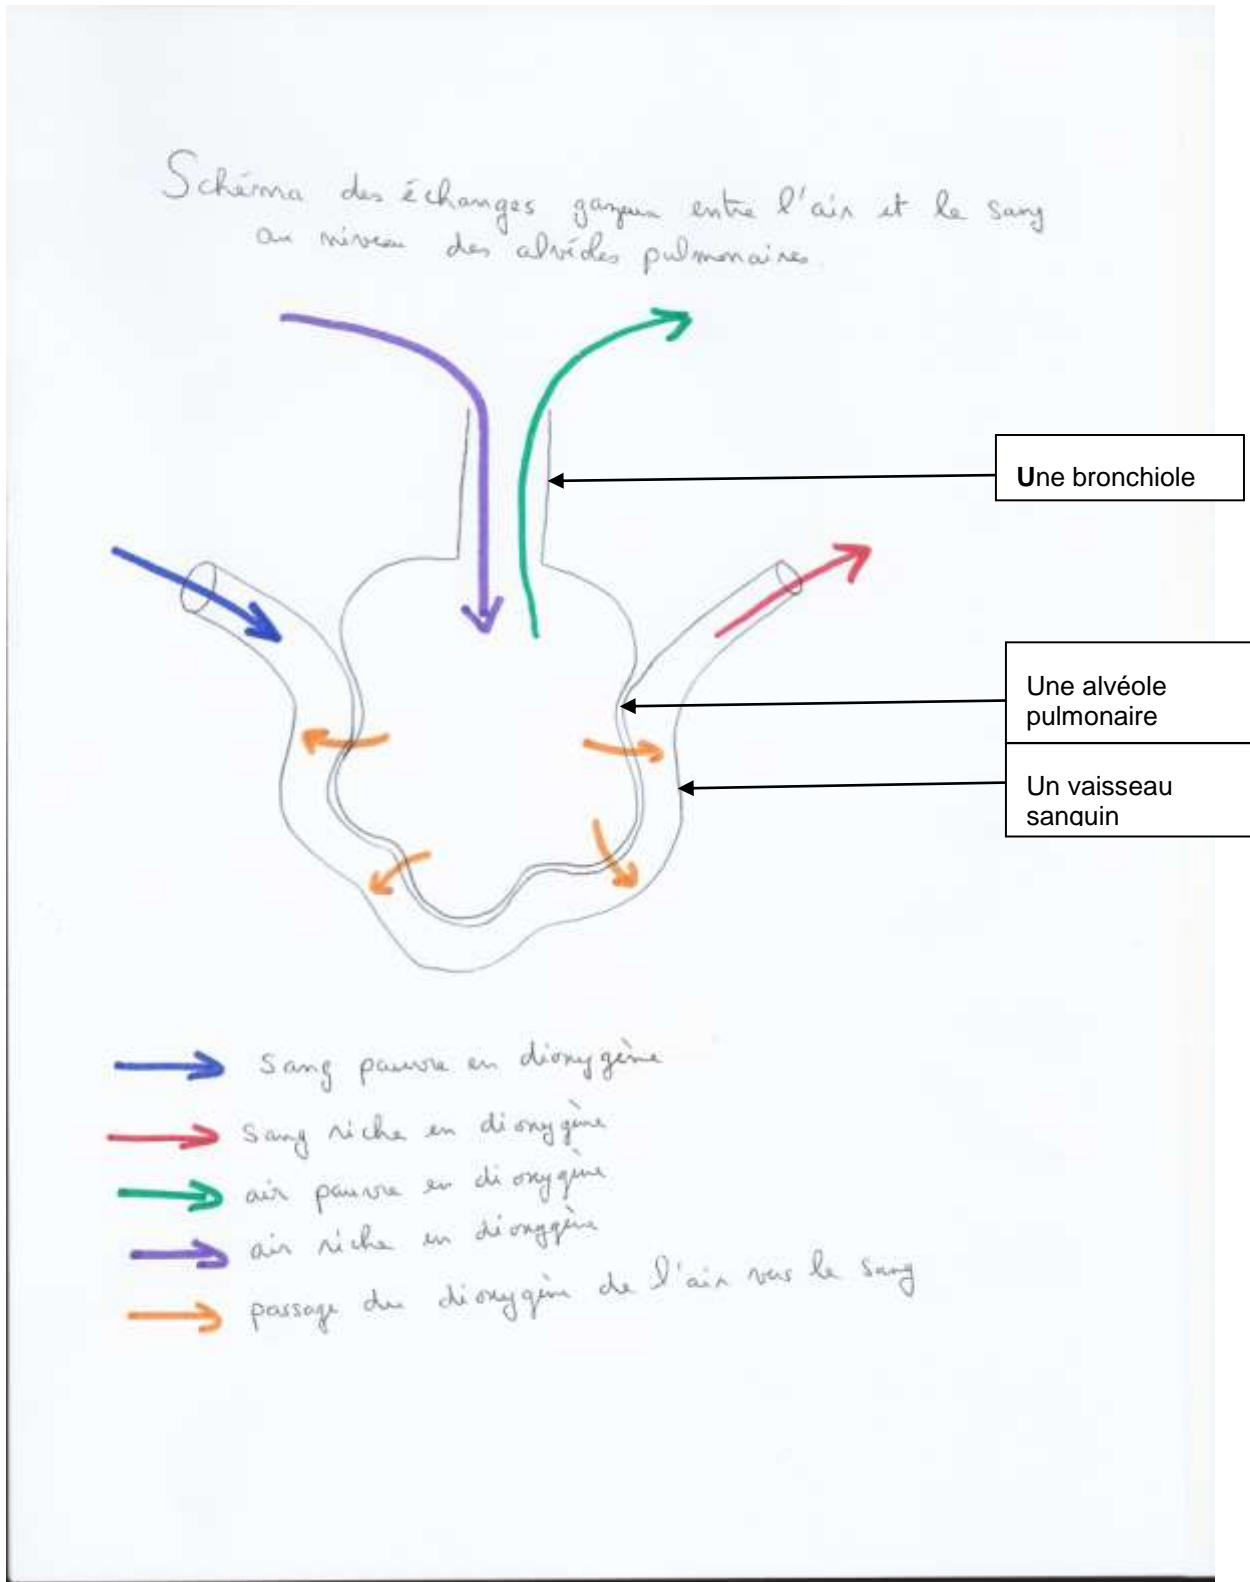 Schéma des échanges gazeux entre l'air et le sang
au niveau des alvéoles pulmonaires.
Une bronchiole
Une alvéole
pulmonaire
Un vaisseau
sanguin
sang pauvre en dioxygène
sang riche en dioxygène
air pauvre en dioxygène
air riche en dioxygène
passage du dioxygène de l'air vers le sang